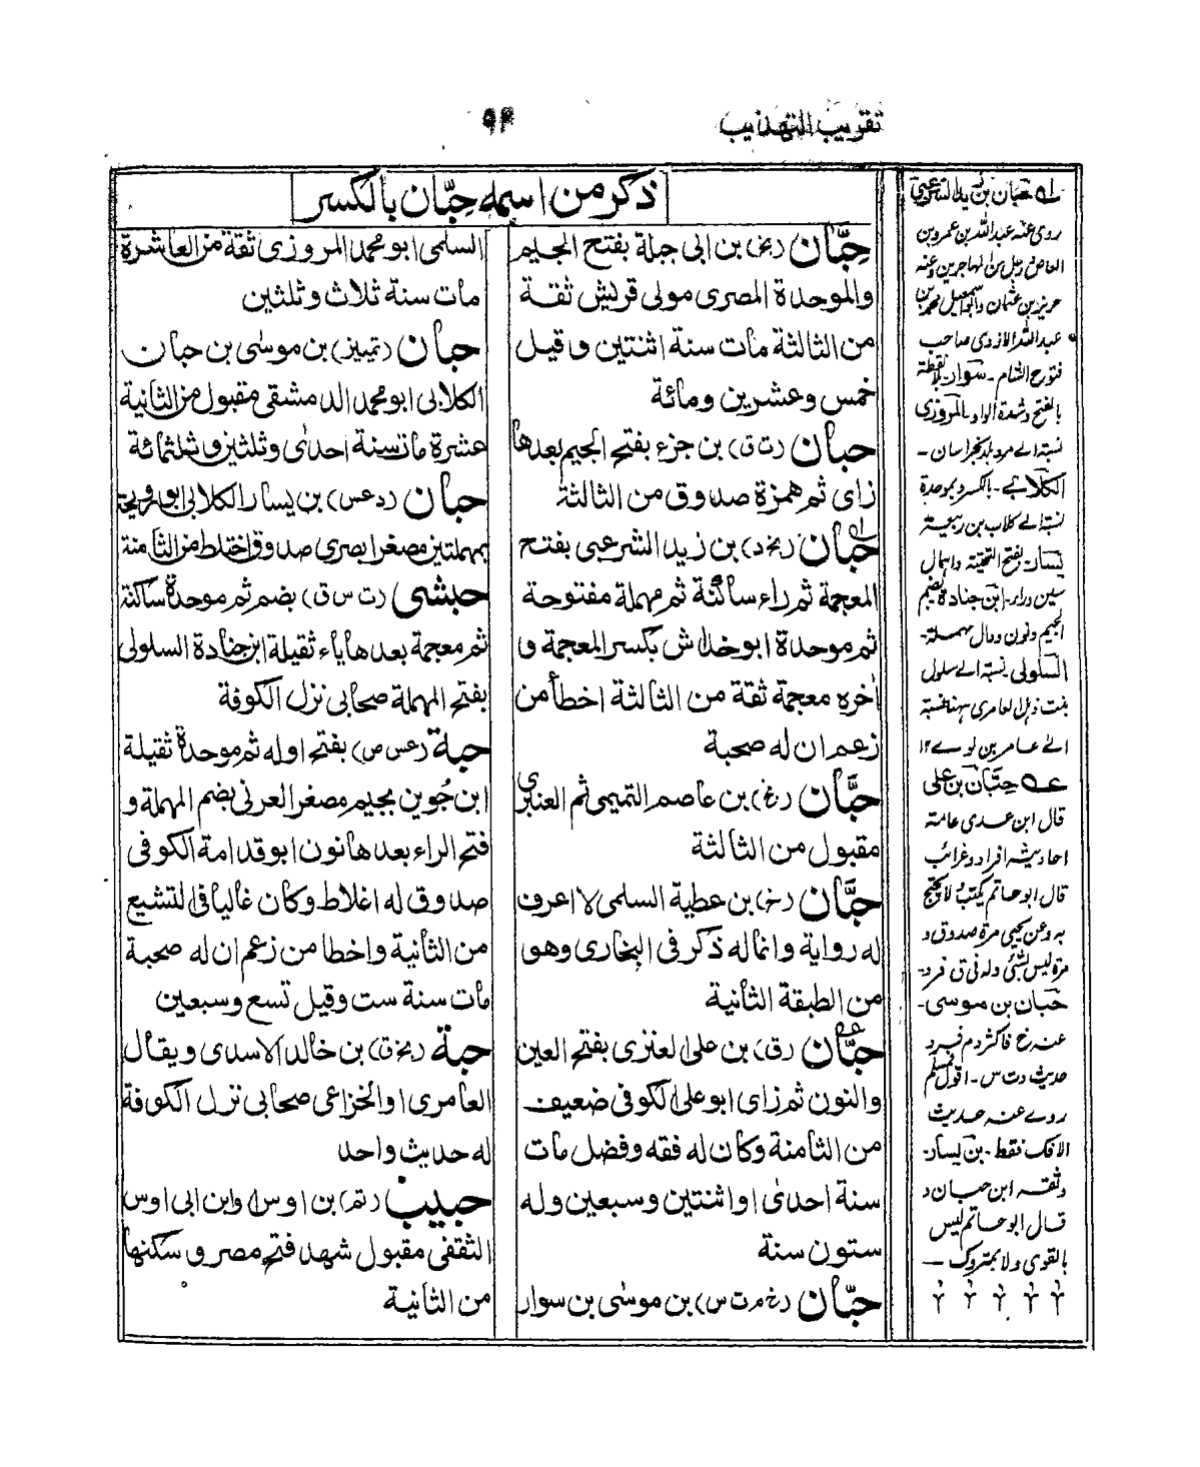 تقريب التهذيب
٩٢
ذكر من اسمه حِبّان بالكسر
حِبَّان (بخ) بن ابى جبلة بفتح الجيم
والموحدة المصرى مولى قريش ثقة
من الثالثة مات سنة اثنتين وقيل
خمس وعشرين ومائة
حبان (ت ق) بن جزء بفتح الجيم بعدها
زاى ثم همزة صدوق من الثالثة
حبان (بخ د) بن زيد الشرعبى بفتح
المعجمة ثم راء ساكنة ثم مهملة مفتوحة
ثم موحدة ابو خداش بكسر المعجمة و
اخره معجمة ثقة من الثالثة اخطأ من
زعم ان له صحبة
حبَّان (بخ) بن عاصم التميمى ثم العنبرى
مقبول من الثالثة
حبَّان (خ) بن عطية السلمى لا اعرف
له رواية وانما له ذكر فى البخارى وهو
من الطبقة الثانية
حبَّان (ق) بن على العنزى بفتح العين
والنون ثم زاى ابو على الكوفى ضعيف
من الثامنة وكان له فقه وفضل مات
سنة احدى او اثنتين وسبعين وله
ستون سنة
حبّان (خ م ت س) بن موسى بن سوار
السلمى ابو محمد المروزى ثقة من العاشرة
مات سنة ثلاث وثلثين
حبان (تمييز) بن موسى بن حبان
الكلابى ابو محمد الدمشقى مقبول من الثانية
عشرة مات سنة احدى وثلثين وثلثمائة
حبان (د عس) بن يسار الكلابى ابو رويحة
بمهملتين مصغرا بصرى صدوق اختلط من الثامنة
حبشى (ت س ق) بضم ثم موحدة ساكنة
ثم معجمة بعدها ياء ثقيلة ابن جنادة السلولى
بفتح المهملة صحابى نزل الكوفة
حبة (عس ص) بفتح اوله ثم موحدة ثقيلة
ابن جُوين بجيم مصغر العرنى بضم المهملة و
فتح الراء بعدها نون ابو قدامة الكوفى
صدوق له اغلاط وكان غاليا فى التشيع
من الثانية واخطا من زعم ان له صحبة
مات سنة ست وقيل تسع وسبعين
حبة (بخ ق) بن خالد الاسدى ويقال
العامرى او الخزاعى صحابى نزل الكوفة
له حديث واحد
حبيب (تم) بن اوس او ابن ابى اوس
الثقفى مقبول شهد فتح مصر و سكنها
من الثانية
له حبان بن زيد الشرعبى
روى عنه عبد الله بن عمرو بن
العاص ورجل من المهاجرين وعنه
حريز بن عثمان وابو اسمعيل محمد بن
عبد الله الازدى صاحب
فتوح الشام - سوار
بالفتح وشدة الواو - المروزى
نسبة الى مرو بلد بخراسان -
الكلابى - بالكسر وبموحدة
نسبة الى كلاب بن ربيعة
يسار - بفتح التحتية واهمال
سين وراء - ابن جنادة بضم
الجيم ونون ودال مهملة -
السلولى نسبة الى سلول
بنت ذهل العامرى نسبة
الى عامر بن لوى ١٢
عه حبَّان بن على
قال ابن عدى عامة
احاديثه افراد وغرائب
قال ابو حاتم يكتب ولا يحتج
به وعن يحيى مرة صدوق و
مرة ليس بشئ وله فى ق فرد -
حبان بن موسى -
عنه خ فاكثر و م فرد
حديث و ت س - اقول مسلم
روى عنه حديث
الافك فقط - بن يسار -
وثقه ابن حبان و
قال ابو حاتم ليس
بالقوى ولا بمتروك —